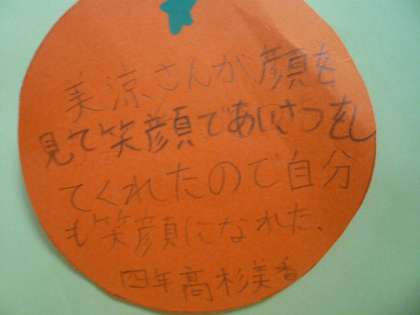 美涼さんが顔を
見て笑顔であいさつをし
てくれたので自分
も笑顔になれた、
四年高杉美香